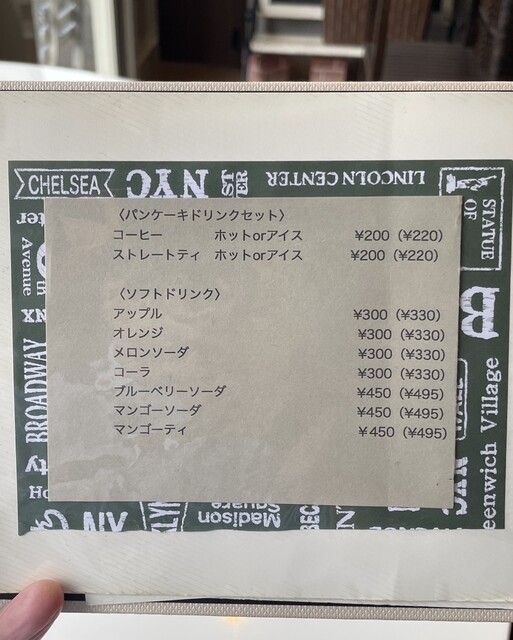 CHELSEA
NYC
LINCOLN CENTER
STATUE
OF
〈パンケーキドリンクセット〉
コーヒー ホットorアイス ¥200（¥220）
ストレートティ ホットorアイス ¥200（¥220）
〈ソフトドリンク〉
アップル ¥300（¥330）
オレンジ ¥300（¥330）
メロンソーダ ¥300（¥330）
コーラ ¥300（¥330）
ブルーベリーソーダ ¥450（¥495）
マンゴーソーダ ¥450（¥495）
マンゴーティ ¥450（¥495）
Avenue
BROADWAY
Madison
Square
eenwich Village